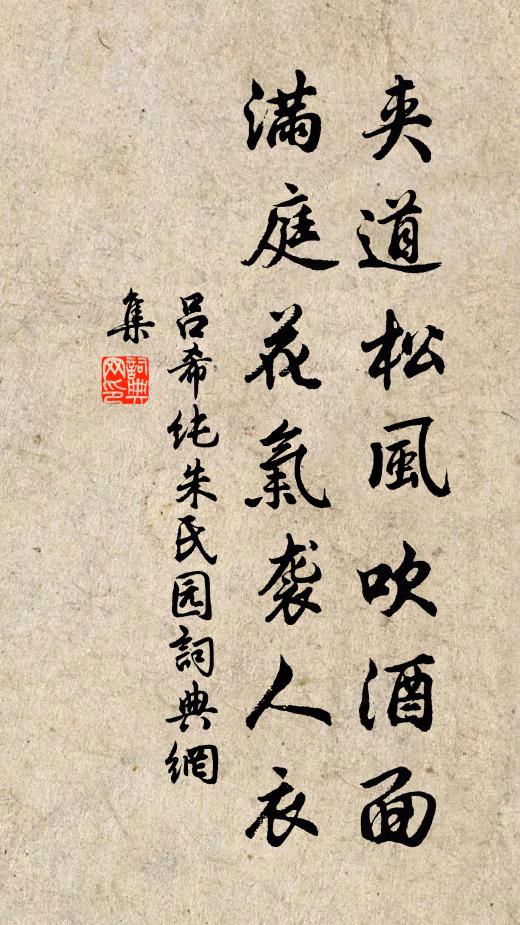 夹道松風吹酒面
滿庭花氣袭人衣
吕希纯朱氏园詞典網
集
詞典
网印